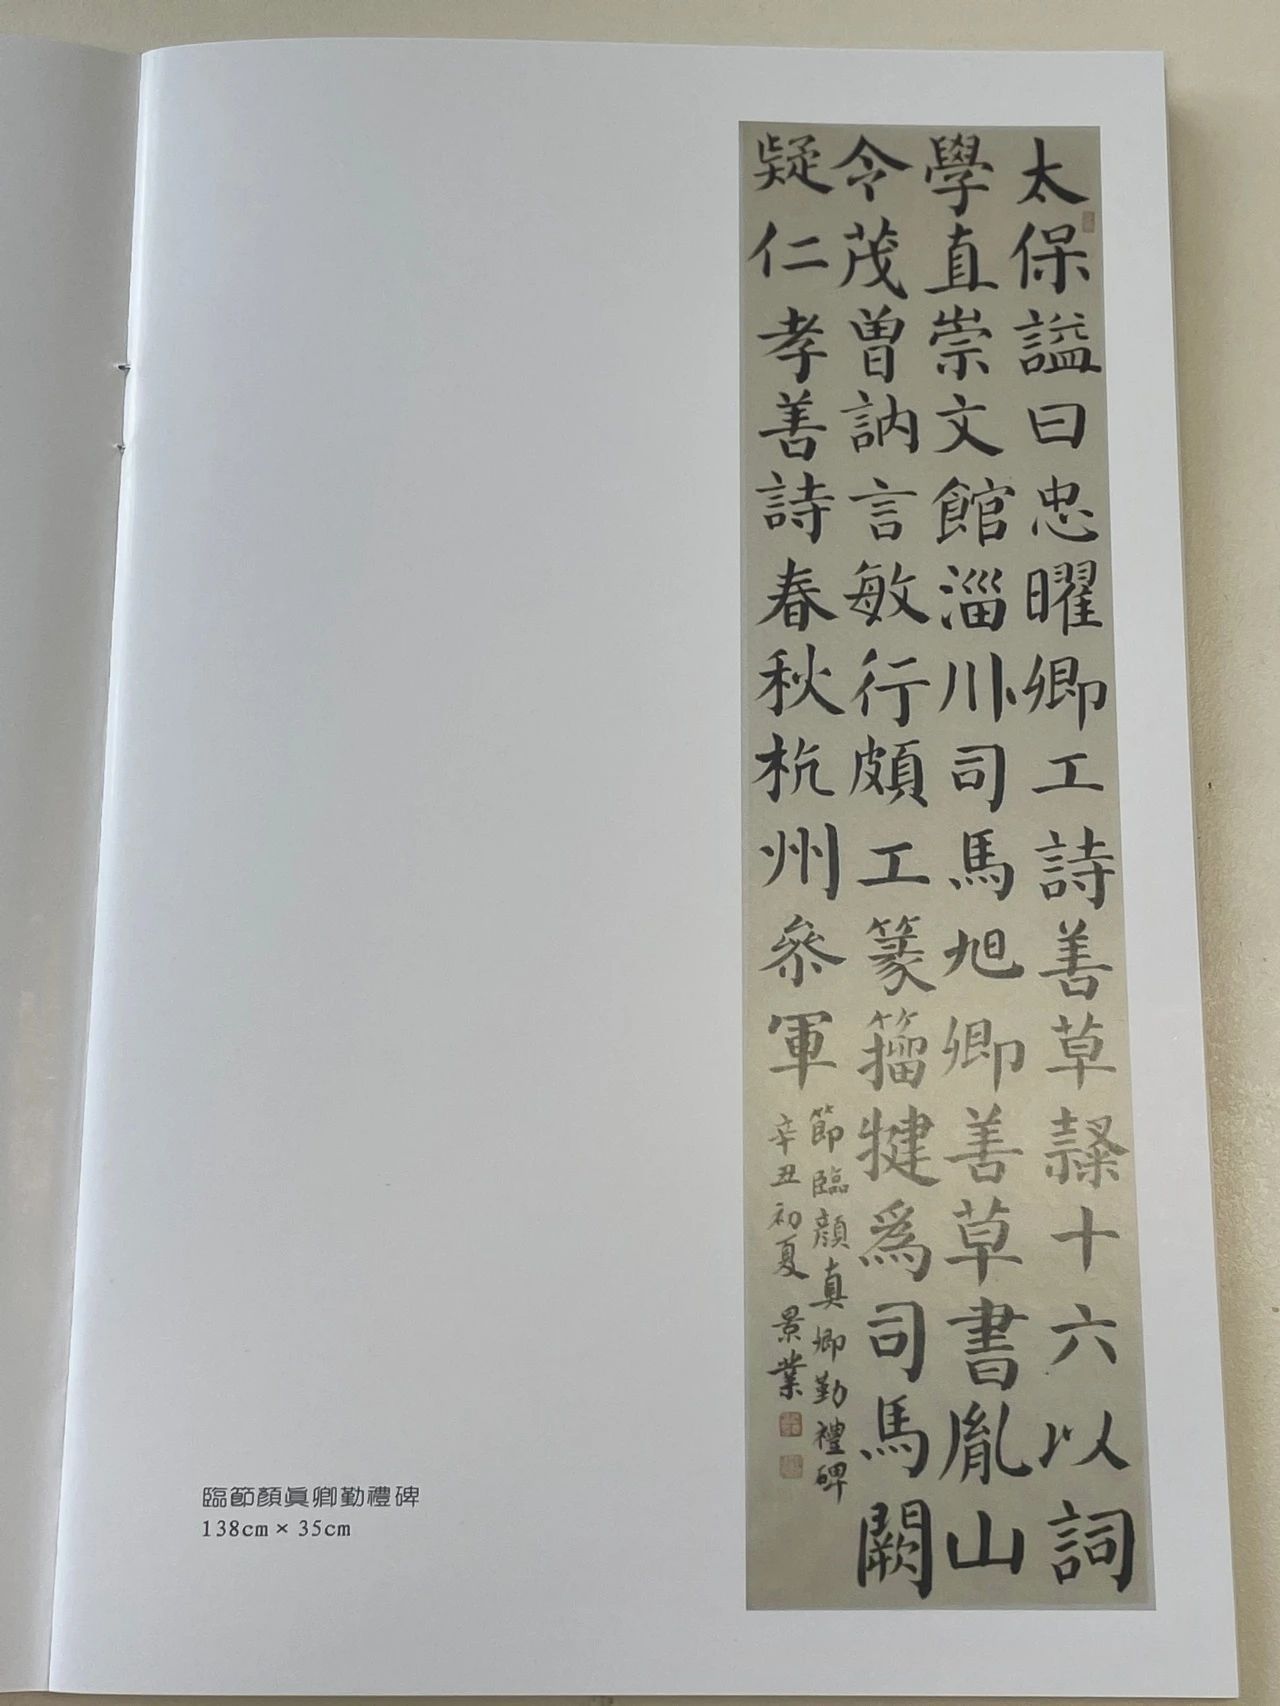 太保謚曰忠曜卿工詩善草隸十六以詞
學直崇文館淄川司馬旭卿善草書胤山
令茂曾訥言敏行頗工篆籀犍為司馬闕
疑仁孝善詩春秋杭州參軍
節臨顔真卿勤禮碑
辛丑初夏 景業
臨節顏眞卿勤禮碑
138cm × 35cm